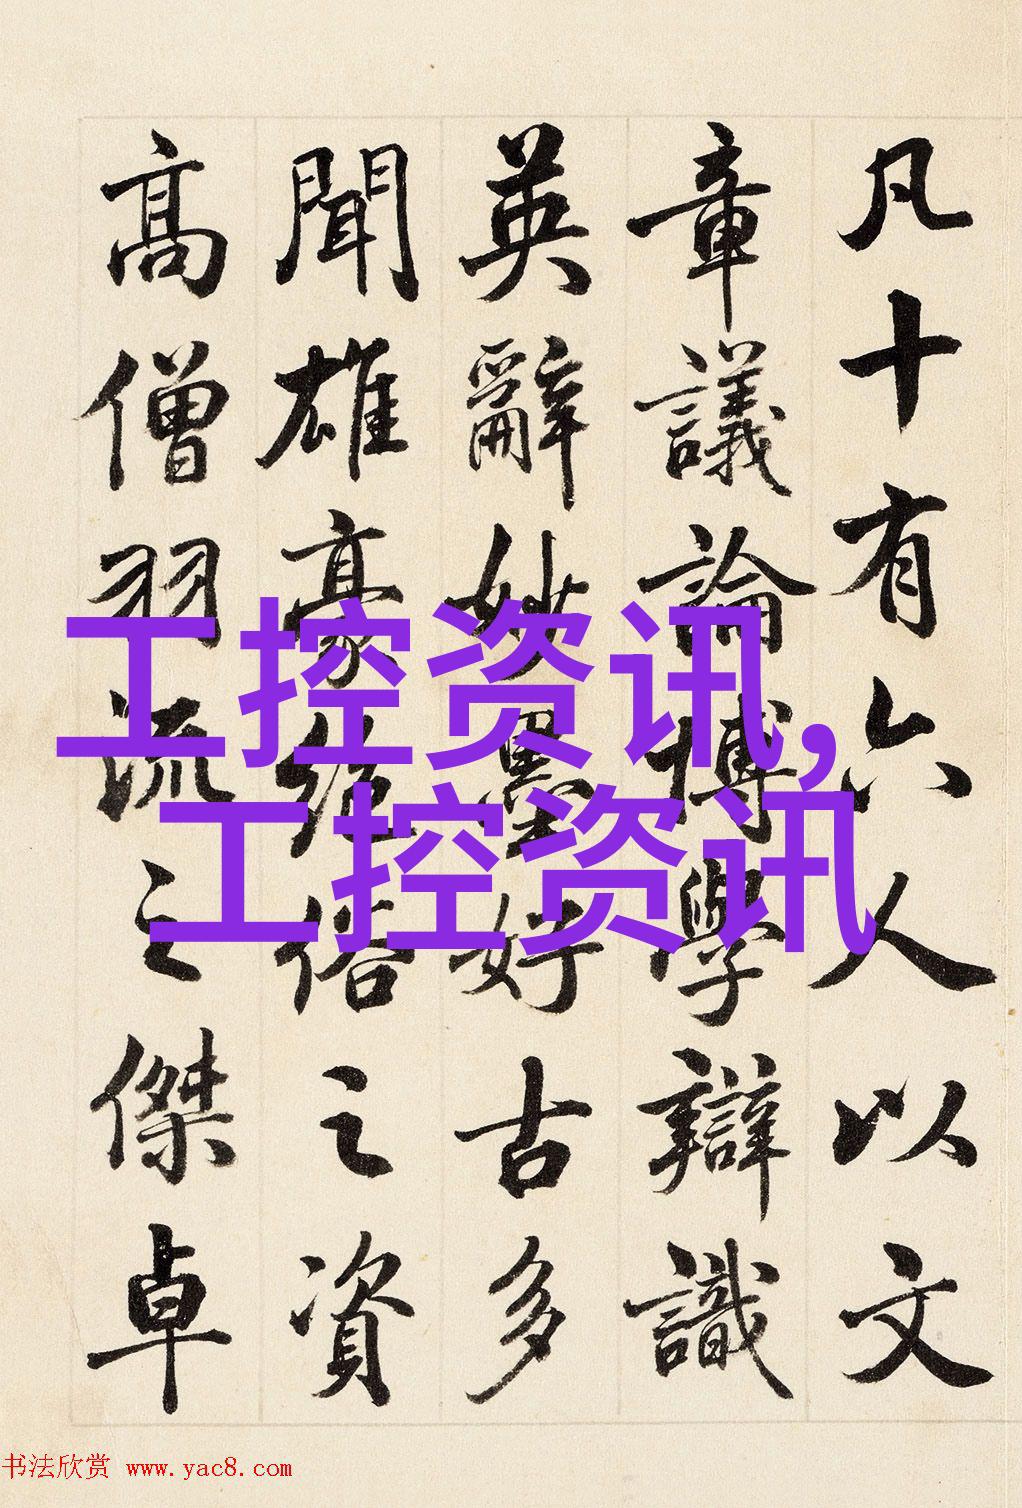 凡十有六人以文
章議論博學辯識
英辭妙墨好古多
聞雄豪絕俗之資
高僧羽流之傑卓
工控资讯,
工控资讯
书法欣赏 www.yac8.com